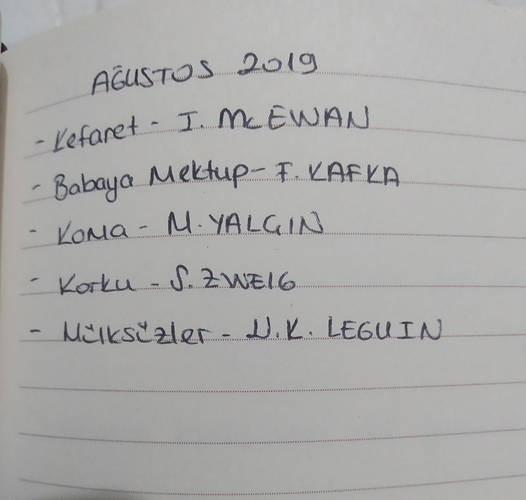 AĞUSTOS 2019
- Kefaret - I. McEWAN
- Babaya Mektup - F. KAFKA
- KOMA - M. YALGIN
- Korku - S. ZWEIG
- Mülksüzler - U.K. LEGUIN